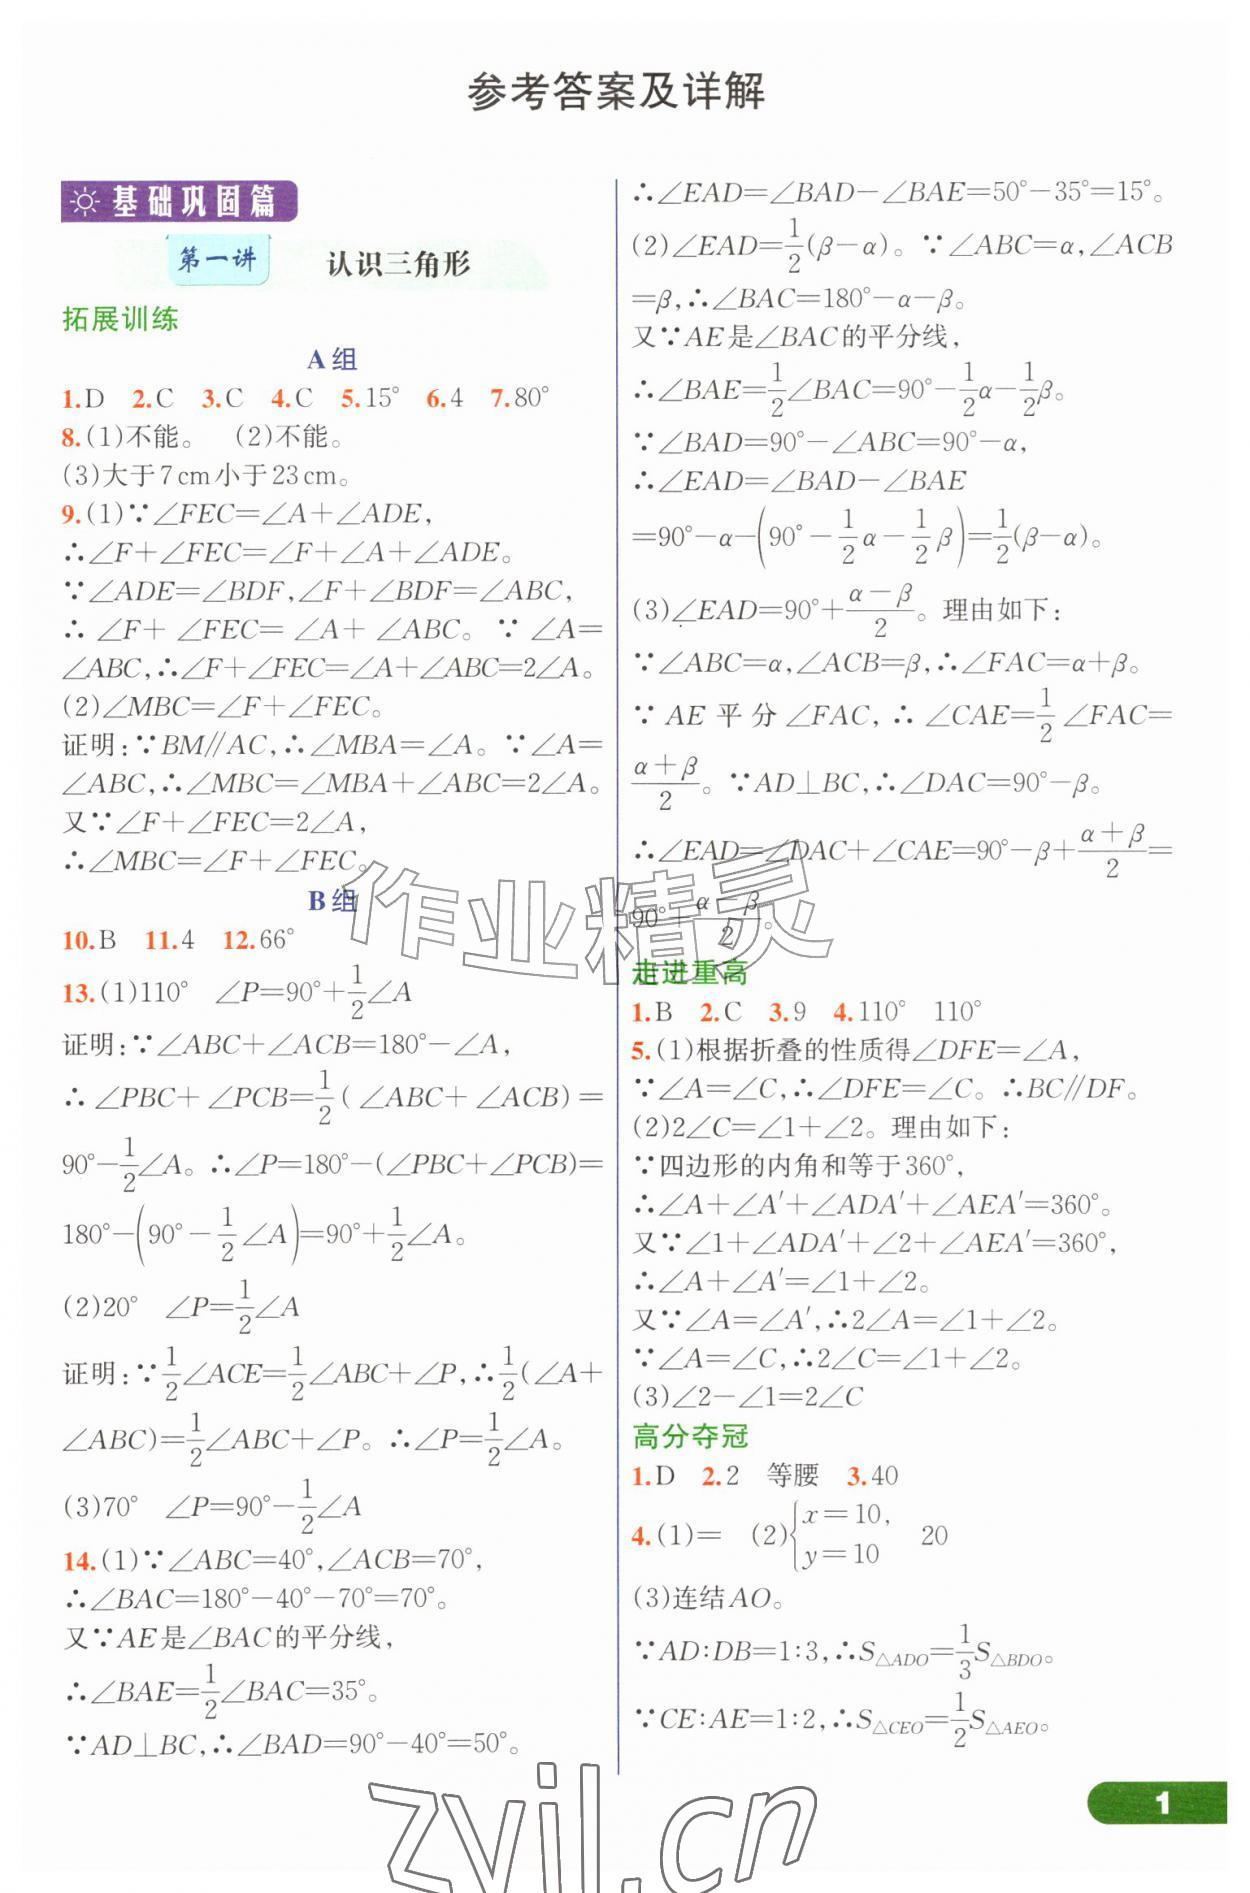 参考答案及详解
基础巩固篇
第一讲 认识三角形
拓展训练
A组
1.D 2.C 3.C 4.C 5.15° 6.4 7.80°
8.(1)不能。 (2)不能。
(3)大于7cm小于23cm。
9.(1)∵∠FEC=∠A+∠ADE,
∴∠F+∠FEC=∠F+∠A+∠ADE。
∵∠ADE=∠BDF,∠F+∠BDF=∠ABC,
∴∠F+∠FEC=∠A+∠ABC。∵∠A=
∠ABC,∴∠F+∠FEC=∠A+∠ABC=2∠A。
(2)∠MBC=∠F+∠FEC。
证明:∵BM∥AC,∴∠MBA=∠A。∵∠A=
∠ABC,∴∠MBC=∠MBA+∠ABC=2∠A。
又∵∠F+∠FEC=2∠A,
∴∠MBC=∠F+∠FEC。
B组
10.B 11.4 12.66°
13.(1)110° ∠P=90°+1/2∠A
证明:∵∠ABC+∠ACB=180°-∠A,
∴∠PBC+∠PCB=1/2(∠ABC+∠ACB)=
90°-1/2∠A。∴∠P=180°-(∠PBC+∠PCB)=
180°-(90°-1/2∠A)=90°+1/2∠A。
(2)20° ∠P=1/2∠A
证明:∵1/2∠ACE=1/2∠ABC+∠P,∴1/2(∠A+
∠ABC)=1/2∠ABC+∠P。∴∠P=1/2∠A。
(3)70° ∠P=90°-1/2∠A
14.(1)∵∠ABC=40°,∠ACB=70°,
∴∠BAC=180°-40°-70°=70°。
又∵AE是∠BAC的平分线,
∴∠BAE=1/2∠BAC=35°。
∵AD⊥BC,∴∠BAD=90°-40°=50°。
∴∠EAD=∠BAD-∠BAE=50°-35°=15°。
(2)∠EAD=1/2(β-α)。∵∠ABC=α,∠ACB
=β,∴∠BAC=180°-α-β。
又∵AE是∠BAC的平分线,
∴∠BAE=1/2∠BAC=90°-1/2α-1/2β。
∵∠BAD=90°-∠ABC=90°-α,
∴∠EAD=∠BAD-∠BAE
=90°-α-(90°-1/2α-1/2β)=1/2(β-α)。
(3)∠EAD=90°+(α-β)/2。理由如下:
∵∠ABC=α,∠ACB=β,∴∠FAC=α+β。
∵AE平分∠FAC,∴∠CAE=1/2∠FAC=
(α+β)/2。∵AD⊥BC,∴∠DAC=90°-β。
∴∠EAD=∠DAC+∠CAE=90°-β+(α+β)/2=
90°+(α-β)/2。
走进重高
1.B 2.C 3.9 4.110° 110°
5.(1)根据折叠的性质得∠DFE=∠A,
∵∠A=∠C,∴∠DFE=∠C。∴BC∥DF。
(2)2∠C=∠1+∠2。理由如下:
∵四边形的内角和等于360°,
∴∠A+∠A′+∠ADA′+∠AEA′=360°。
又∵∠1+∠ADA′+∠2+∠AEA′=360°,
∴∠A+∠A′=∠1+∠2。
又∵∠A=∠A′,∴2∠A=∠1+∠2。
∵∠A=∠C,∴2∠C=∠1+∠2。
(3)∠2-∠1=2∠C
高分夺冠
1.D 2.2 等腰 3.40
4.(1)= (2){x=10, y=10 20
(3)连结AO。
∵AD:DB=1:3,∴S△ADO=1/3S△BDO。
∵CE:AE=1:2,∴S△CEO=1/2S△AEO。
1
作业精灵
zyjl.cn